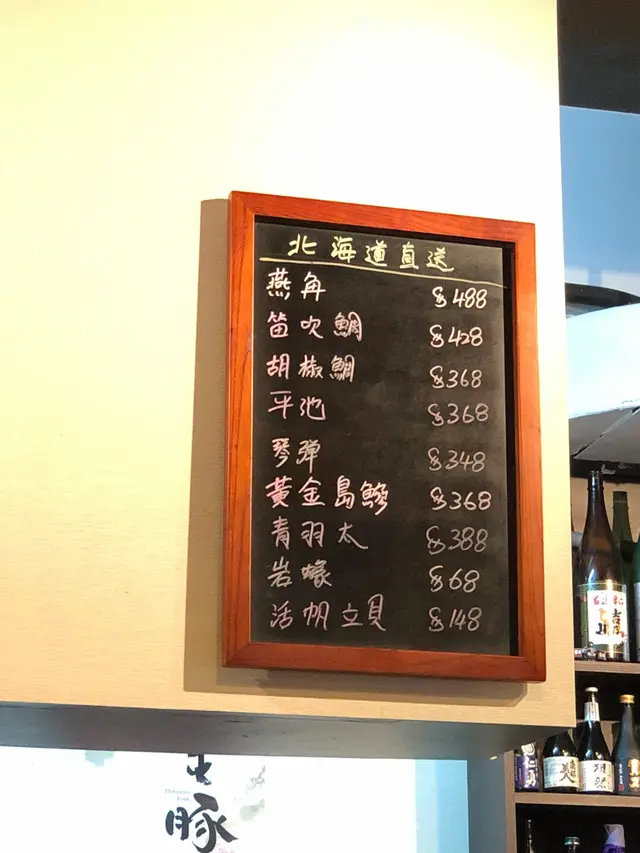 北海道直送
燕角 $488
笛吹鯛 $428
胡椒鯛 $368
平池 $368
琴弾 $348
黃金島鰺 $368
青羽太 $388
岩蠔 $68
活帆立貝 $148
豚